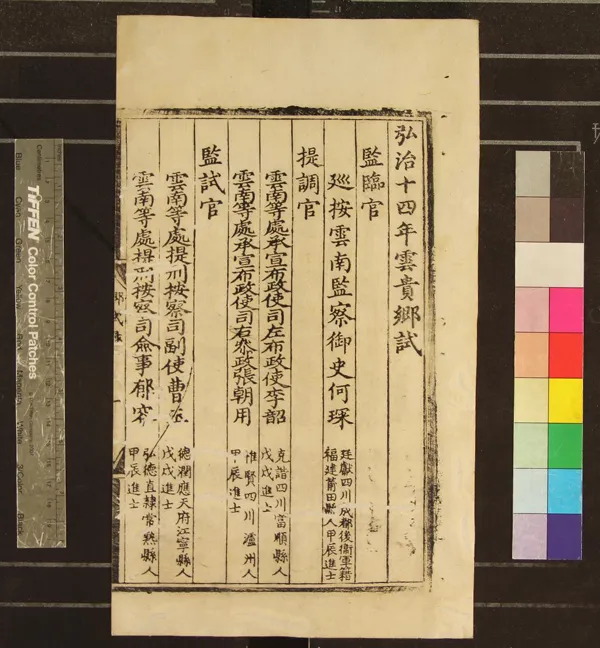 弘治十四年雲貴鄉試
監臨官
廵按雲南監察御史何琛
廷獻四川成都後衞軍籍
福建莆田縣人甲辰進士
提調官
雲南等處承宣布政使司左布政使李韶
克諧四川富順縣人
戊戌進士
雲南等處承宣布政使司右叅政張朝用
惟賢四川瀘州人
甲辰進士
監試官
雲南等處提刑按察司副使曹玉
德潤應天府江寧縣人
戊戌進士
雲南等處提刑按察司僉事郁容
弘德直隷常熟縣人
甲辰進士
鄉試錄
TIFFEN Color Control Patches
Blue
Cyan
Green
Yellow
Red
Magenta
White
3/Color
Black